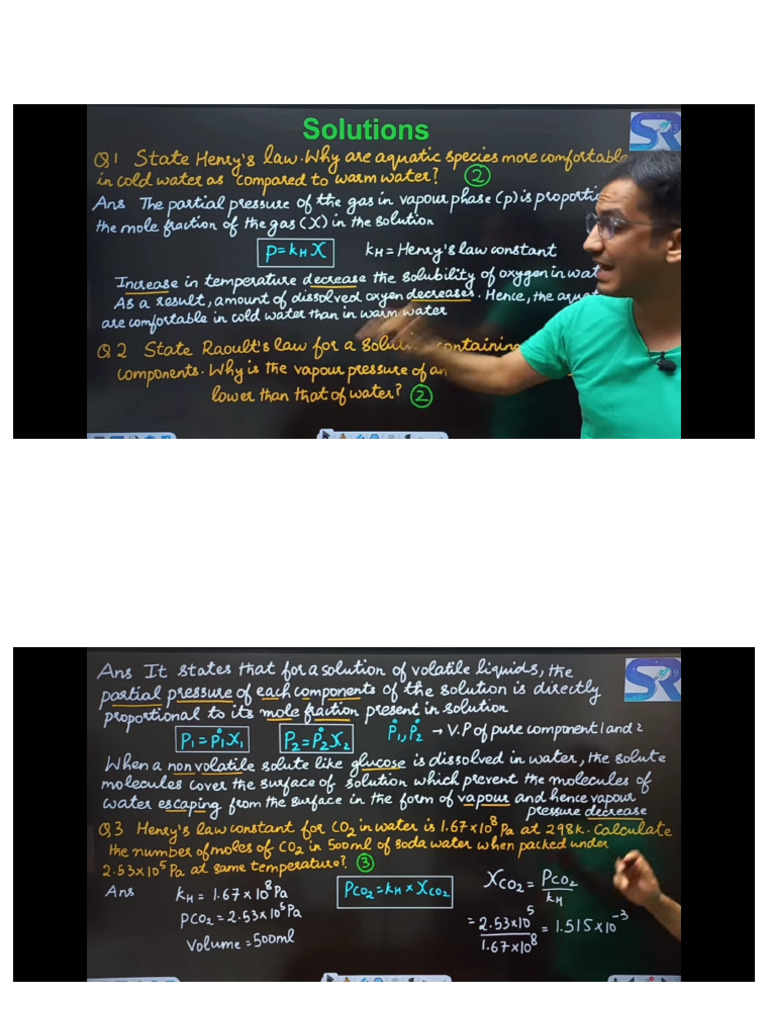 Solutions
SR
Q1 State Henry's law. Why are aquatic species more comfortable
in cold water as compared to warm water? (2)
Ans The partial pressure of the gas in vapour phase (p) is
the mole fraction of the gas (X) in the solution
P = kH X kH = Henry's law constant
Increase in temperature decrease the solubility of oxygen in
As a result, amount of dissolved oxyen decreases. Hence, the
are comfortable in cold water than in warm water
Q2 State Raoult's law for a
components. Why is the vapour pressure of
lower than that of water? (2)
Ans It states that for a solution of volatile liquids, the
SR
partial pressure of each components of the solution is directly
proportional to its mole fraction present in solution
P₁ = P₁° X₁ P₂ = P₂° X₂ P₁°, P₂° → V.P of pure component 1 and 2
When a non volatile solute like glucose is dissolved in water, the solute
molecules cover the surface of solution which prevent the molecules of
water escaping from the surface in the form of vapour and hence vapour
pressure decrease
Q3 Henry's law constant for CO2 in water is 1.67×10⁸ Pa at 298K. Calculate
the number of moles of CO2 in 500ml of soda water when packed under
2.53×10⁵ Pa at same temperature? (3)
Ans kH = 1.67×10⁸ Pa PCO2 = kH × XCO2 XCO2 = PCO2 / kH
PCO2 = 2.53×10⁵ Pa = 2.53×10⁵ / 1.67×10⁸ = 1.515×10⁻³
Volume = 500ml